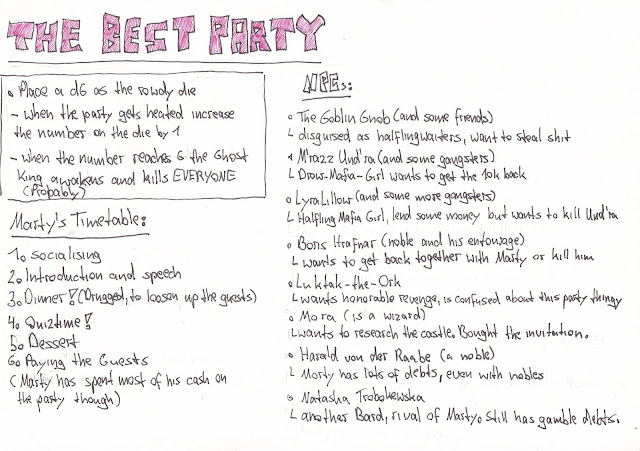 THE BEST PARTY
o Place a d6 as the rowdy die
- when the party gets heated increase
the number on the die by 1
- when the number reaches 6 the Ghost
King awakens and kills EVERYONE
(Probably)
Marty's Timetable:
1. socialising
2. Introduction and speech
3. Dinner! (Drugged, to loosen up the guests)
4. Quiztime!
5. Dessert
6. Paying the Guests
(Marty has spent most of his cash on
the party though)
NPCs:
o The Goblin Gnob (and some friends)
L disguised as halflingwaiters, want to steal shit
M'razz Und'ra (and some gangsters)
L Drow-Mafia-Girl wants to get the 10k back
o Lyra Lillow (and some more gangsters)
L Halfling Mafia Girl, lend some money but wants to kill Und'ra
o Boris (noble and his entourage)
L wants to get back together with Marty or kill him
o Luktak-the-Ork
L wants honorable revenge, is confused about this party thingy
o Mora (is a wizard)
L wants to research the castle. Bought the invitation.
o Harald von der Raabe (a noble)
L Marty has lots of debts, even with nobles
o Natasha
L another Bard, rival of Marty. Still has gamble debts.